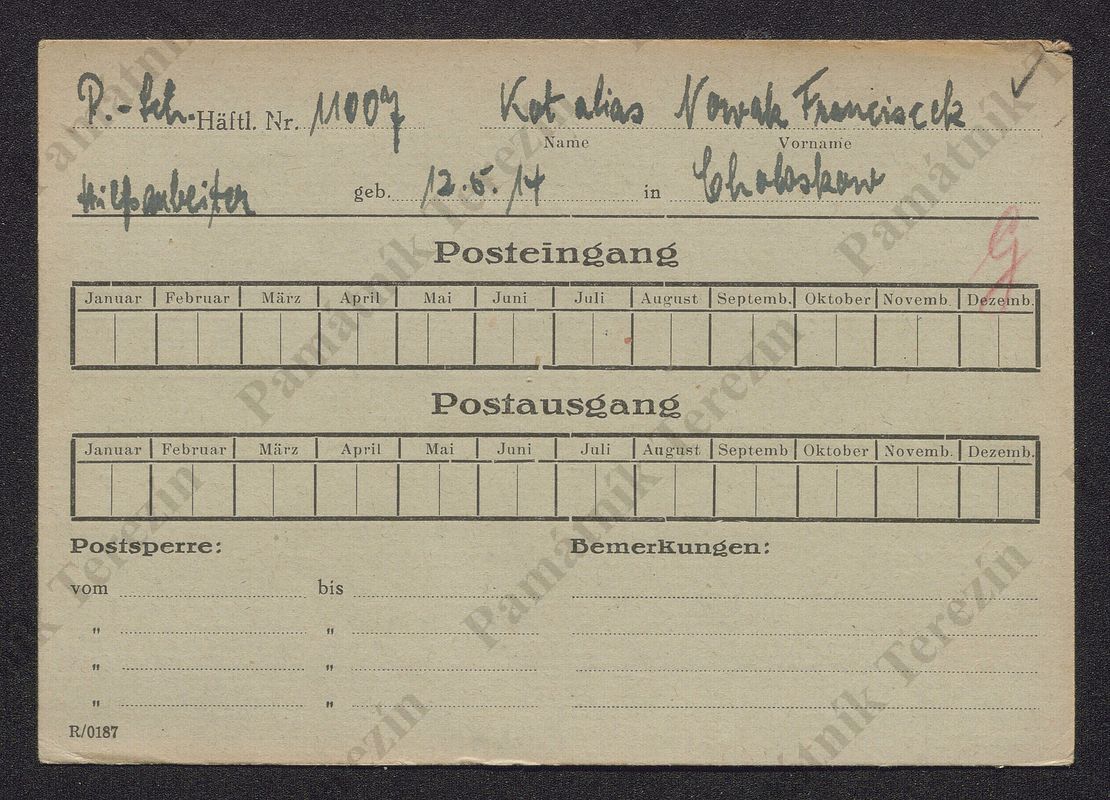 P.-Sch. Häftl. Nr. 11007 Kot alias Nowak Franciscek
Name Vorname
Hilfsarbeiter geb. 12.5.14 in
G
Posteingang
Januar Februar März April Mai Juni Juli August Septemb. Oktober Novemb. Dezemb.
Postausgang
Januar Februar März April Mai Juni Juli August Septemb Oktober Novemb. Dezemb.
Postsperre: Bemerkungen:
vom bis
" "
" "
" "
R/0187
Památník Terezín